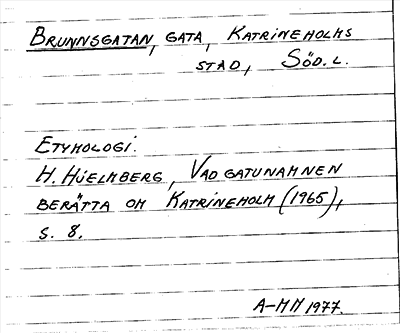 BRUNNSGATAN, GATA, KATRINEHOLMS
STAD, SÖD. L.
ETYMOLOGI:
H. HJELMBERG, VAD GATUNAMNEN
BERÄTTA OM KATRINEHOLM (1965),
S. 8.
A-MM 1977.